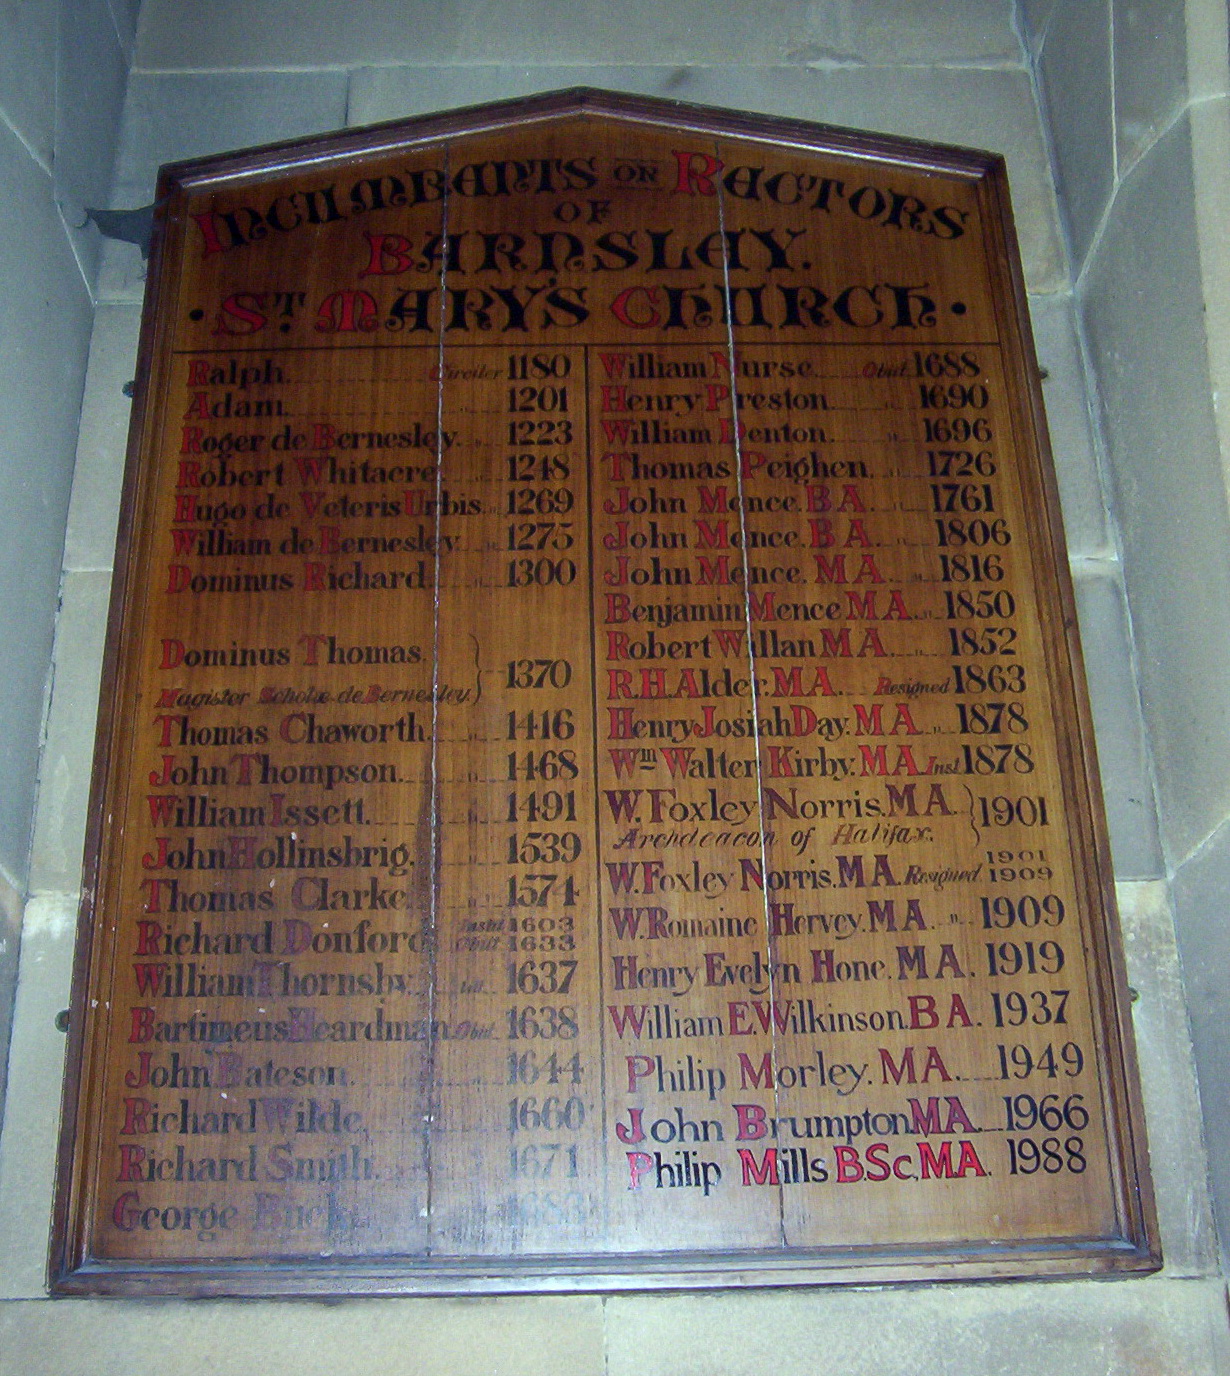 Incumbents or Rectors
of
Barnsley.
· St. Marys Church. ·
Ralph Circiter 1180
Adam " 1201
Roger de Bernesley " 1223
Robert Whitacre " 1248
Hugo de Veteris Urbis " 1269
William de Bernesley " 1275
Dominus Richard " 1300
Dominus Thomas
Magister Scholæ de Bernesley } 1370
Thomas Chaworth " 1416
John Thompson " 1468
William Issett " 1491
John Hollinsbrig " 1539
Thomas Clarke " 1574
Richard Donford Instd 1603
Obiit 1633
William Thornsby 1637
Bartimeus Heardman Obiit 1638
John Bateson 1644
Richard Wilde 1660
Richard Smith 1671
George Buck 1683
William Nurse Obiit 1688
Henry Preston " 1690
William Denton " 1696
Thomas Peighen " 1726
John Mence BA " 1761
John Mence BA " 1806
John Mence MA " 1816
Benjamin Mence MA " 1850
Robert Willan MA " 1852
RH Alder MA Resigned 1863
Henry Josiah Day MA " 1878
Wm Walter Kirby MA Inst 1878
W Foxley Norris MA
Archdeacon of Halifax. } 1901
W Foxley Norris MA Resigned 1901
1909
W Romaine Hervey MA " 1909
Henry Evelyn Hone, MA 1919
William E Wilkinson BA 1937
Philip Morley MA 1949
John Brumpton MA 1966
Philip Mills BSc, MA 1988